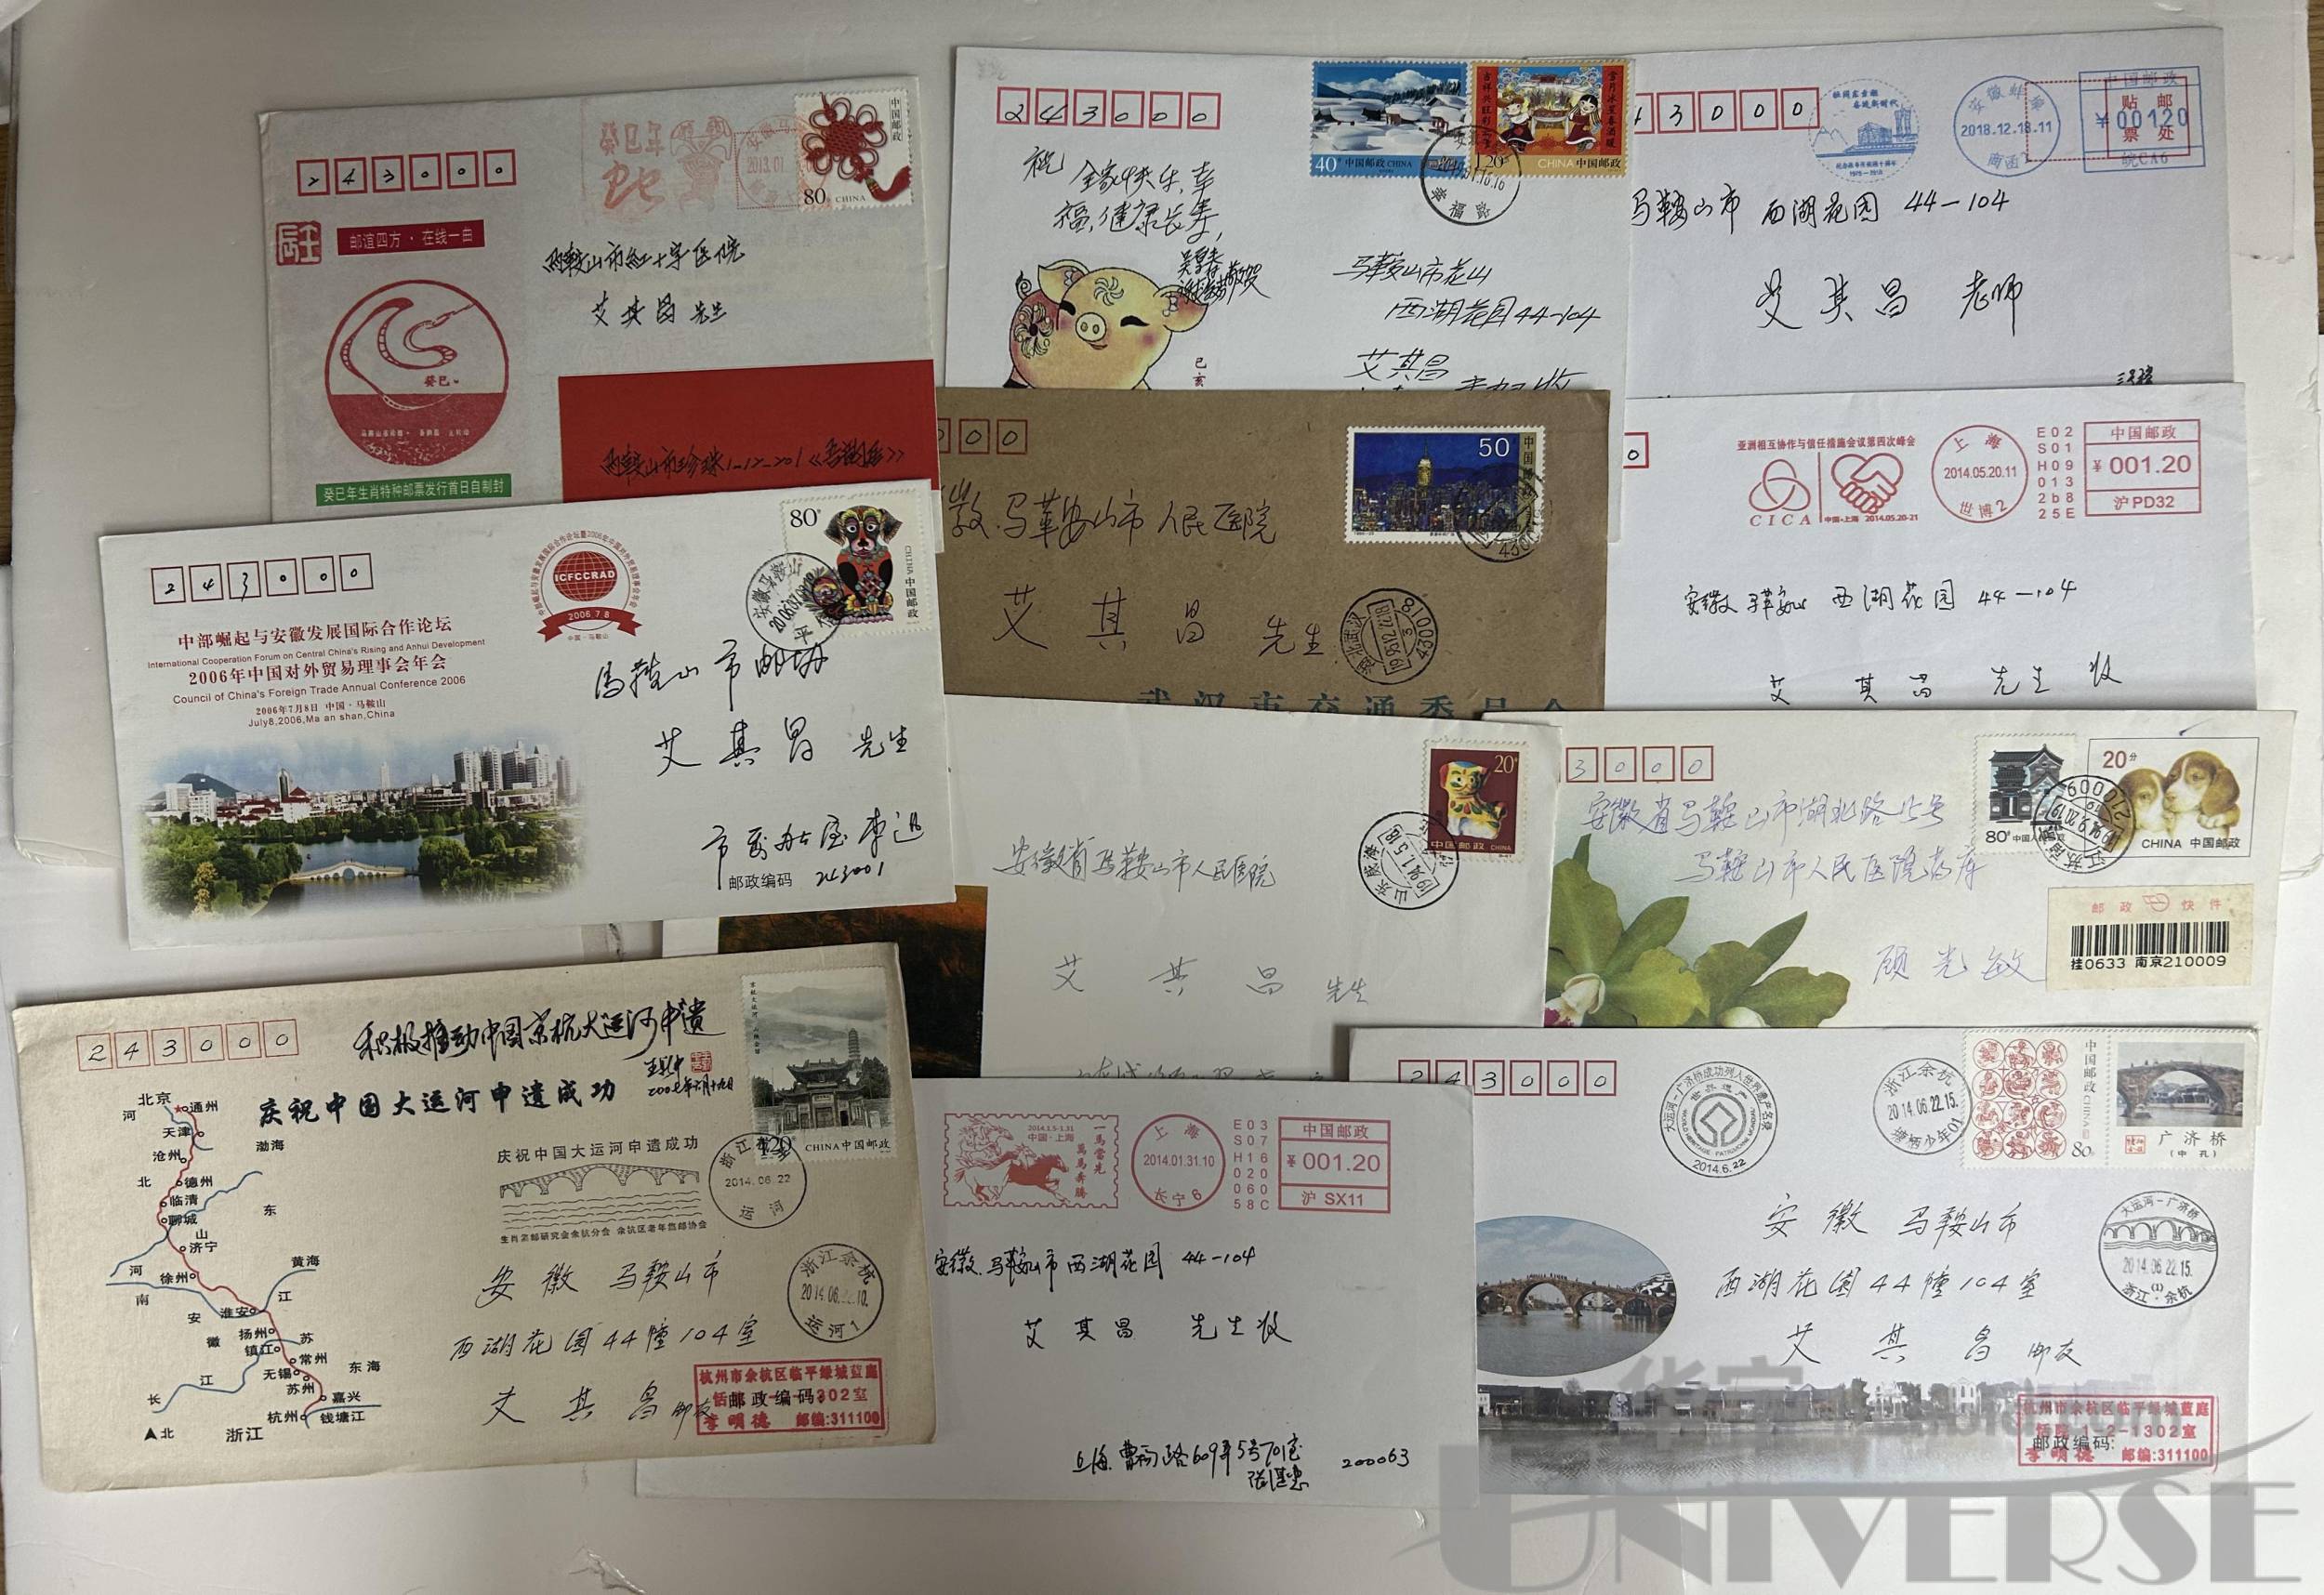 243000
癸巳年
中国邮政
80分 CHINA
邮谊四方·在线一曲
马鞍山市红十字医院
艾其昌 先生
癸巳
癸巳年生肖特种邮票发行首日自制封
243000
祝
全家快乐,幸
福,健康长寿,
己亥
40分 中国邮政 CHINA
1.20元
CHINA 中国邮政
幸福路
马鞍山市花山
西湖花园44-104
艾其昌
43000
2018.12.18.11
中国邮政
贴邮
票处
¥00120
皖CA6
马鞍山市 西湖花园 44-104
艾其昌 老师
243000
ICFCCRAD
2006.7.8
中国·马鞍山
80分
CHINA 中国邮政
中部崛起与安徽发展国际合作论坛
International Cooperation Forum on Central China's Rising and Anhui Development
2006年中国对外贸易理事会年会
Council of China's Foreign Trade Annual Conference 2006
2006年7月8日 中国·马鞍山
July8,2006,Ma an shan,China
马鞍山市邮协
艾其昌 先生
邮政编码 243001
000
50
中国邮政
马鞍山市人民医院
艾其昌 先生
湖北武汉
430018
武汉市交通委员会
0
亚洲相互协作与信任措施会议第四次峰会
CICA
中国·上海 2014.05.20-21
上海
2014.05.20.11
世博2
E02
S01
H09
013
2b8
25E
中国邮政
¥001.20
沪PD32
安徽 马鞍山 西湖花园 44-104
艾其昌 先生 收
20分
中国邮政 CHINA
山东威海
安徽省马鞍山市人民医院
艾其昌 先生
3000
80分 中国人民邮政
20分
CHINA 中国邮政
210009
安徽省马鞍山市湖北路15号
马鞍山市人民医院药库
顾光敏
邮政快件
挂0633 南京210009
243000
积极推动中国京杭大运河申遗
庆祝中国大运河申遗成功
庆祝中国大运河申遗成功
生肖集邮研究会余杭分会 余杭区老年集邮协会
CHINA中国邮政
2014.06.22
运河
浙江余杭
2014.06.22.10.
运河1
北京
通州
河
天津
渤海
沧州
北
德州
临清
聊城
东
山
济宁
河
徐州
黄海
南
安
淮安
江
徽
扬州
苏
镇江
常州
无锡
东海
江
苏州
长
嘉兴
杭州
钱塘江
▲北
浙江
安徽 马鞍山市
西湖花园44幢104室
艾其昌 邮友
杭州市余杭区临平绿城蓝庭
邮政编码:302室
李明德 邮编:311100
2014.1.5-1.31
中国·上海
一马当先
万马奔腾
上海
2014.01.31.10
长宁6
E03
S07
H16
020
060
58C
中国邮政
¥001.20
沪 SX11
安徽.马鞍山市西湖花园 44-104
艾其昌 先生收
上海.曹杨路609弄5号701室
200063
243000
大运河-广济桥成功列入世界遗产名录
WORLD HERITAGE · PATRIMOINE MONDIAL
2014.6.22
浙江余杭
2014.06.22.15.
塘栖少年01
中国邮政 CHINA
80分
广济桥
(中孔)
大运河-广济桥
2014.06.22.15.
(1)
浙江·余杭
安徽 马鞍山市
西湖花园44幢104室
艾其昌 邮友
杭州市余杭区临平绿城蓝庭
2-1302室
邮政编码:
李明德 邮编:311100
华宇
UNIVERSE